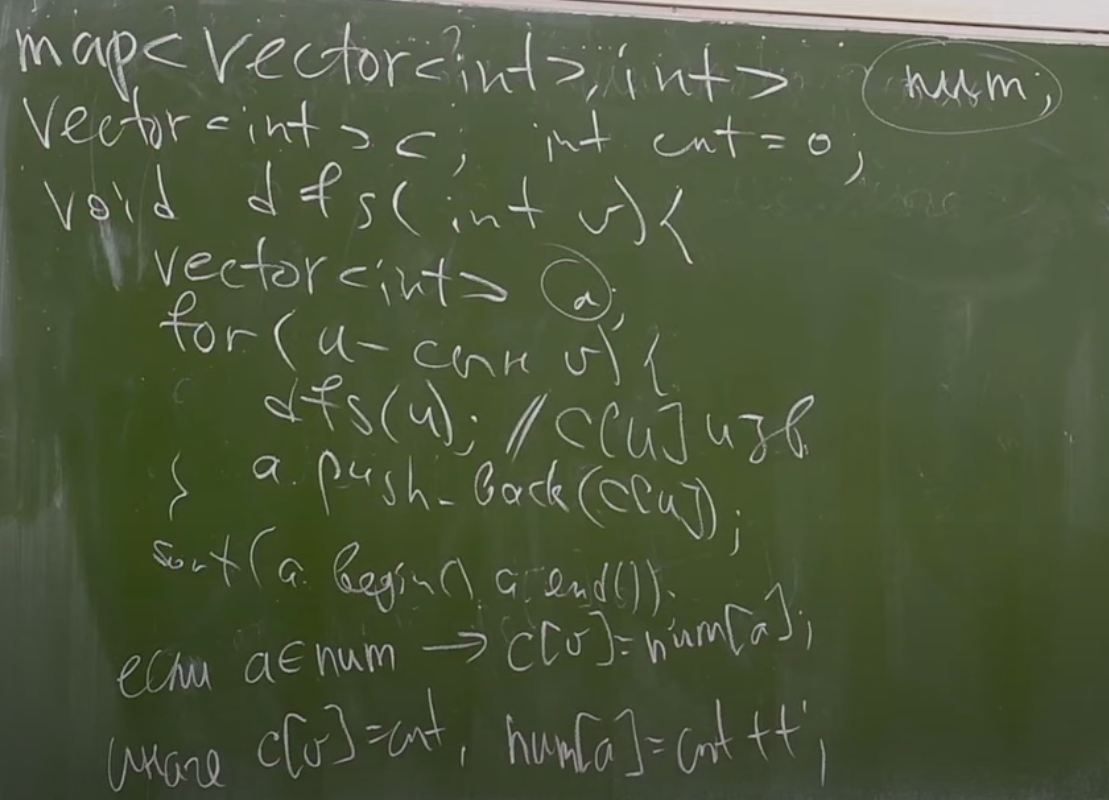 map<vector<int>, int> num;
vector<int> c; int cnt = 0;
void dfs(int v){
vector<int> a;
for(u - сын v){
dfs(u); // c[u] изв
} a.push_back(c[u]);
sort(a.begin(), a.end());
если a∈num → c[v]=num[a];
иначе c[v]=cnt, num[a]=cnt++;